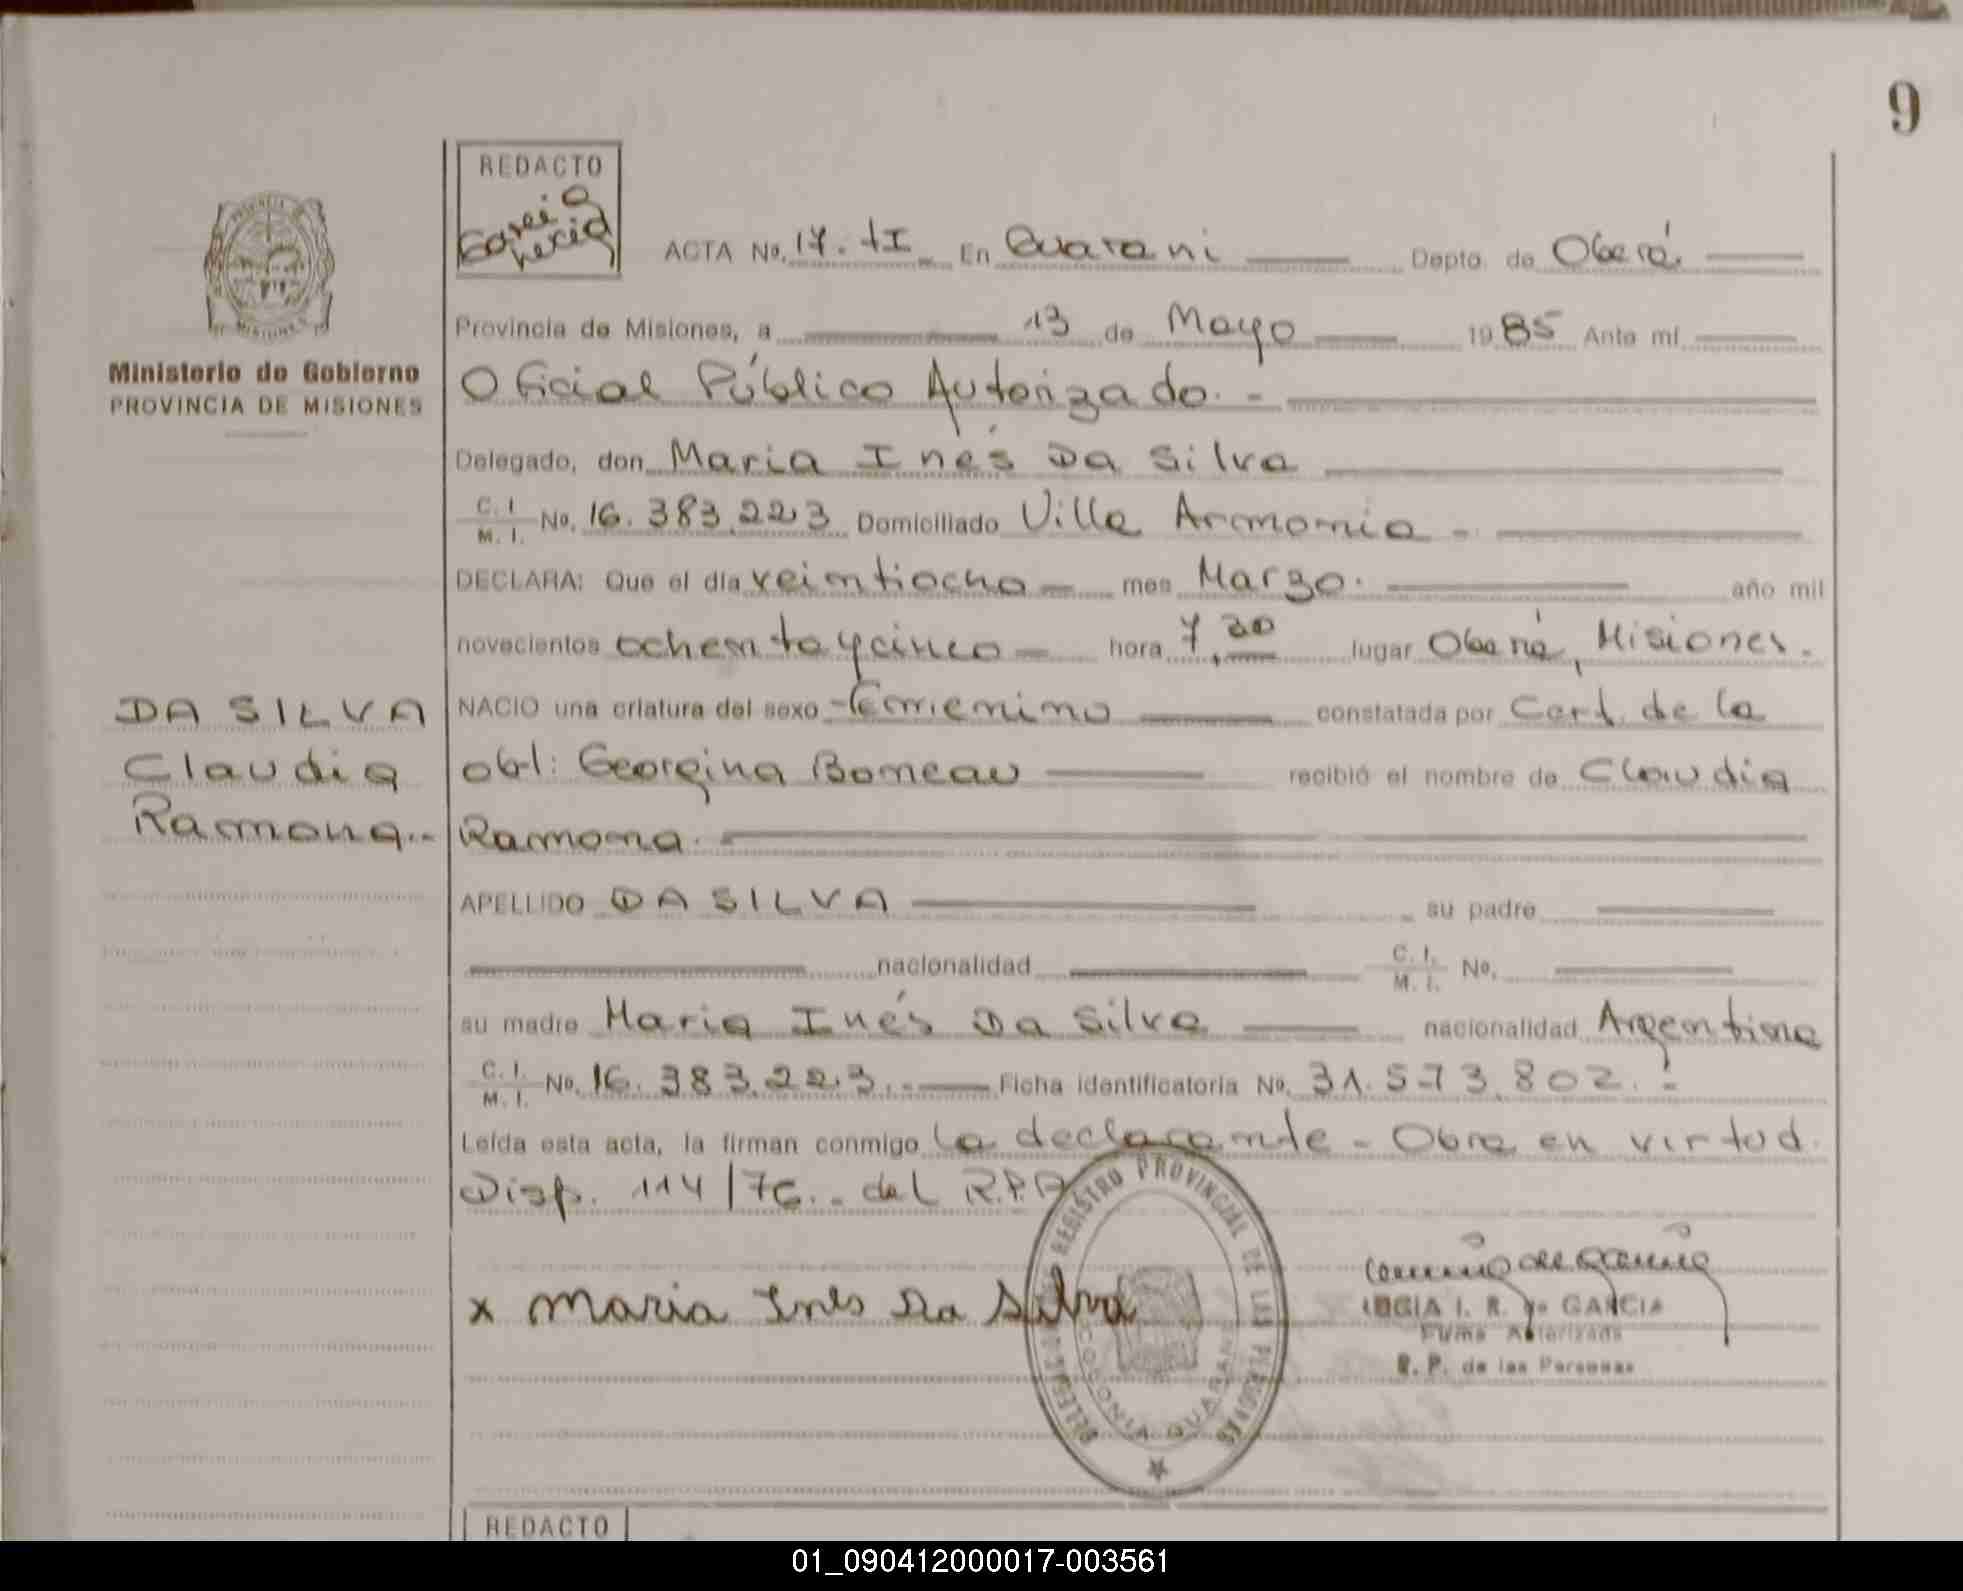 9
REDACTO
ACTA No. 17. tI En Guarani Depto. de Oberá
Provincia de Misiones, a 13 de Mayo 1985 Ante mí
Ministerio de Gobierno
PROVINCIA DE MISIONES
Oficial Público Autorizado. -
Delegado, don Maria Inés Da Silva
C. I. M. I. No. 16.383.223 Domiciliado Villa Armonia -
DECLARA: Que el día veintiocho mes Marzo. año mil
novecientos ochenta y cinco hora 7,30 lugar Oberá, Misiones.
DA SILVA
Claudia
Ramona..
NACIO una criatura del sexo femenino constatada por Cert. de la
obt: Georgina Boneau recibió el nombre de Claudia
Ramona.
APELLIDO DA SILVA su padre
nacionalidad C. I. M. I. No.
su madre Maria Inés Da Silva nacionalidad Argentina
C. I. M. I. No. 16.383.223.- Ficha identificatoria No. 31.573.802.-
Leída esta acta, la firman conmigo la declarante - Obra en virtud
Disp. 114/76.- del R.P.P
x Maria Ines Da Silva
REGISTRO PROVINCIAL DE LAS PERSONAS
COLONIA GUARANI
I. R. de GARCIA
Firma Autorizada
R. P. de las Personas
REDACTO
01_090412000017-003561